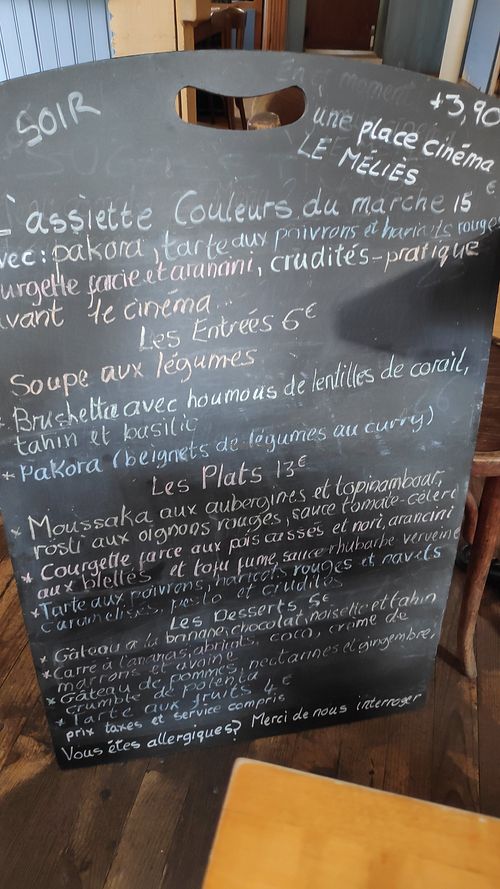 SOIR
+3,90€
une place cinéma
LE MÉLIÈS
L'assiette Couleurs du marche 15 €
vec: pakora, tarte aux poivrons et haricots rouges
urgette farcie et arancini, crudités-pratique
avant le cinéma
Les Entrées 6€
Soupe aux légumes
* Brushetta avec houmous de lentilles de corail,
tahin et basilic
* Pakora (beignets de légumes au curry)
Les Plats 13€
* Moussaka aux aubergines et topinambour,
rosti aux oignons rouges, sauce tomate-céleri
* Courgette farce aux pois cassés et nori, arancini
aux blettes et tofu fume sauce rhubarbe verveine
* Tarte aux poivrons, haricots rouges et navets
caramélisés, pesto et crudités
Les Desserts 5€
* Gâteau a la banane, chocolat, noisette et tahin
* Carre à l'ananas, abricots, coco, crème de
marrons et avoine
* Gâteau de pommes, nectarines et gingembre,
crumble de polenta
* Tarte aux fruits 4 €
prix taxes et service compris
Vous êtes allergiques? Merci de nous interroger